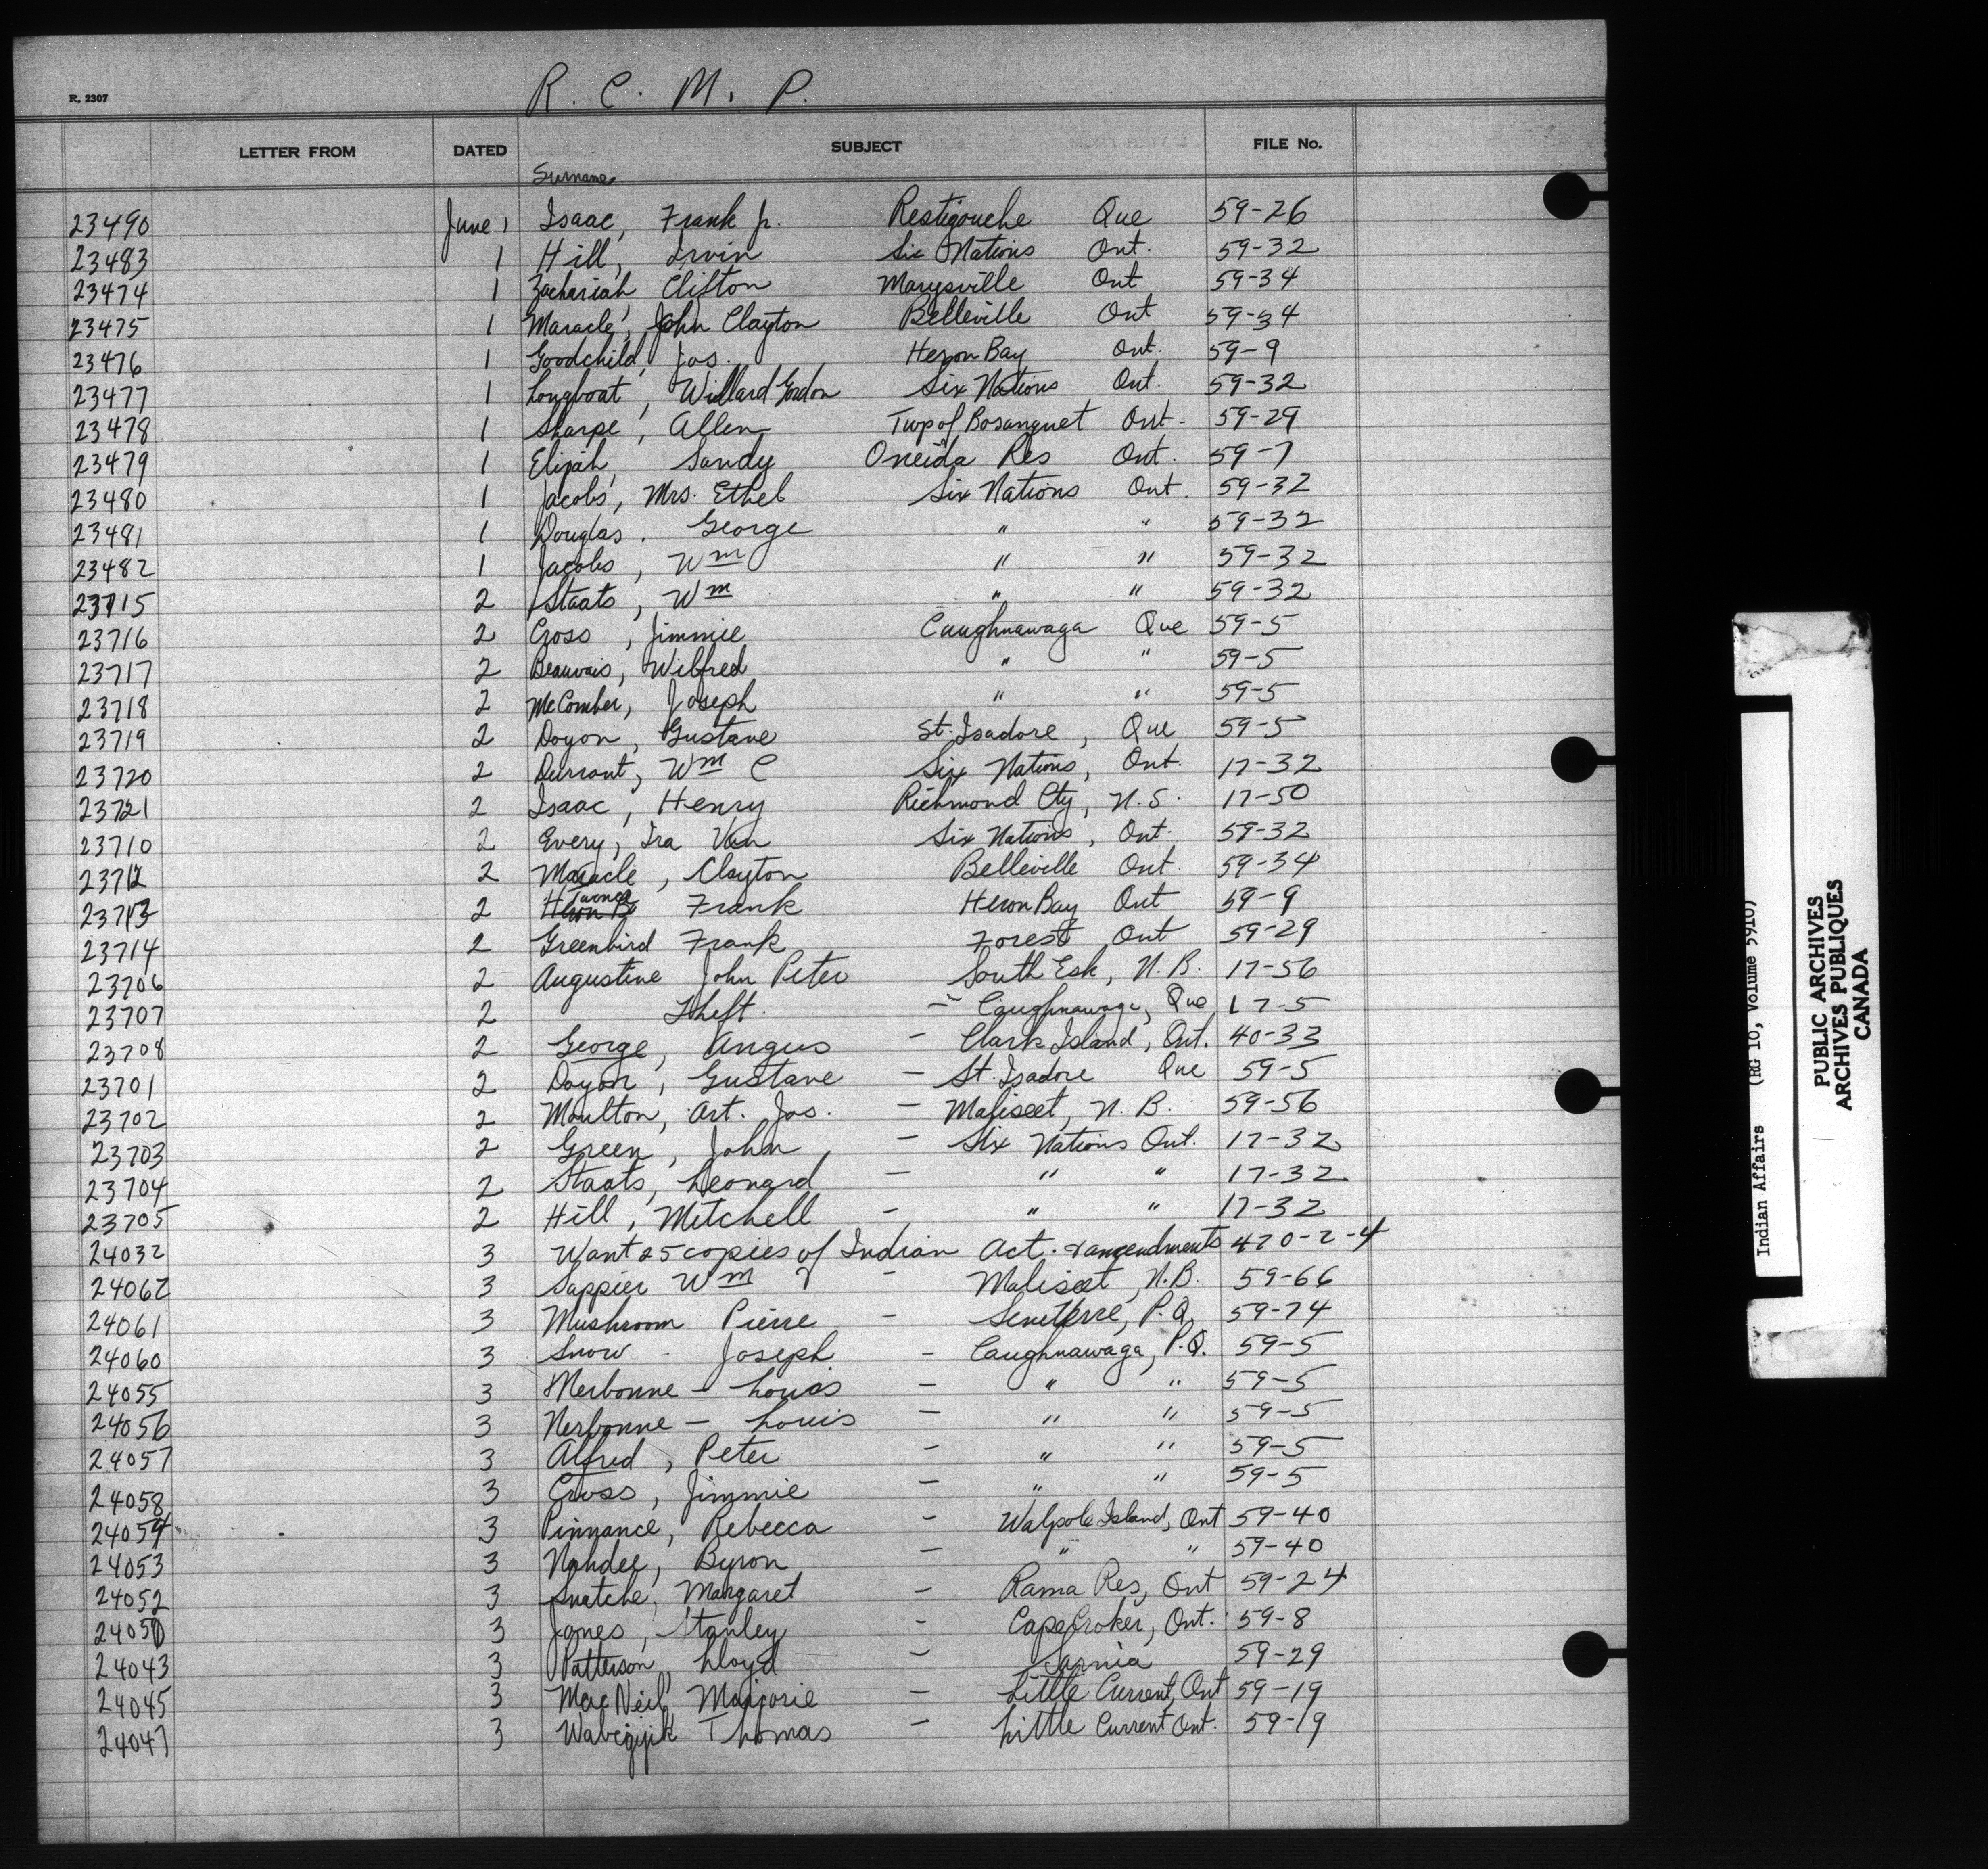 R. 2307
R. C. M. P.
LETTER FROM DATED SUBJECT FILE No.
Surname
23490 June 1 Isaac, Frank Jr. Restigouche Que 59-26
23483 1 Hill, Irvin Six Nations Ont. 59-32
23474 1 Zachariah Clifton Marysville Ont 59-34
23475 1 Maracle, John Clayton Belleville Ont 59-34
23476 1 Goodchild, Jos. Heron Bay Ont. 59-9
23477 1 Longboat, Willard Gordon Six Nations Ont. 59-32
23478 1 Sharpe, Allen Twp of Bosanquet Ont. 59-29
23479 1 Elijah, Sandy Oneida Res Ont. 59-7
23480 1 Jacobs, Mrs. Ethel Six Nations Ont. 59-32
23481 1 Douglas. George " " 59-32
23482 1 Jacobs, Wm " " 59-32
23715 2 Staats, Wm " " 59-32
23716 2 Cross, Jimmie Caughnawaga Que 59-5
23717 2 Beauvais, Wilfred " " 59-5
23718 2 McComber, Joseph " " 59-5
23719 2 Doyon, Gustave St. Isadore, Que 59-5
23720 2 Durrant, Wm C Six Nations, Ont. 17-32
23721 2 Isaac, Henry Richmond Cty, N.S. 17-50
23710 2 Every, Ira Van Six Nations, Ont. 59-32
23712 2 Maracle, Clayton Belleville Ont. 59-34
23713 2 Frank Heron Bay Ont 59-9
23714 2 Greenbird Frank Forest Ont 59-29
23706 2 Augustine John Peter South Esk, N.B. 17-56
23707 2 Theft. - Caughnawaga, Que 17-5
23708 2 George, Angus - Clark Island, Ont. 40-33
23701 2 Doyon, Gustave - St. Isadore Que 59-5
23702 2 Moulton, Art. Jos. - Maliseet, N.B. 59-56
23703 2 Green, John - Six Nations Ont. 17-32
23704 2 Staats, Leonard - " " 17-32
23705 2 Hill, Mitchell - " " 17-32
24032 3 Want 25 copies of Indian Act. & amendments 470-2-4
24062 3 Sappier Wm - Maliseet, N.B. 59-66
24061 3 Mushroom Pierre - Senneterre, P.Q. 59-74
24060 3 Snow - Joseph - Caughnawaga, P.Q. 59-5
24055 3 Merbonne - Louis - " " 59-5
24056 3 Nerbonne - Louis - " " 59-5
24057 3 Alfred, Peter - " " 59-5
24058 3 Cross, Jimmie - " " 59-5
24054 3 Pinnance, Rebecca - Walpole Island, Ont 59-40
24053 3 Nahdee, Byron - " " 59-40
24052 3 Snatche, Margaret - Rama Res, Ont 59-24
24050 3 Jones, Stanley - Cape Croker, Ont. 59-8
24043 3 Patterson, Lloyd - Sarnia 59-29
24045 3 MacNeil, Marjorie - Little Current, Ont 59-19
24047 3 Wabegijik Thomas - Little Current Ont. 59-19
Indian Affairs (RG 10, Volume 5910)
PUBLIC ARCHIVES
ARCHIVES PUBLIQUES
CANADA